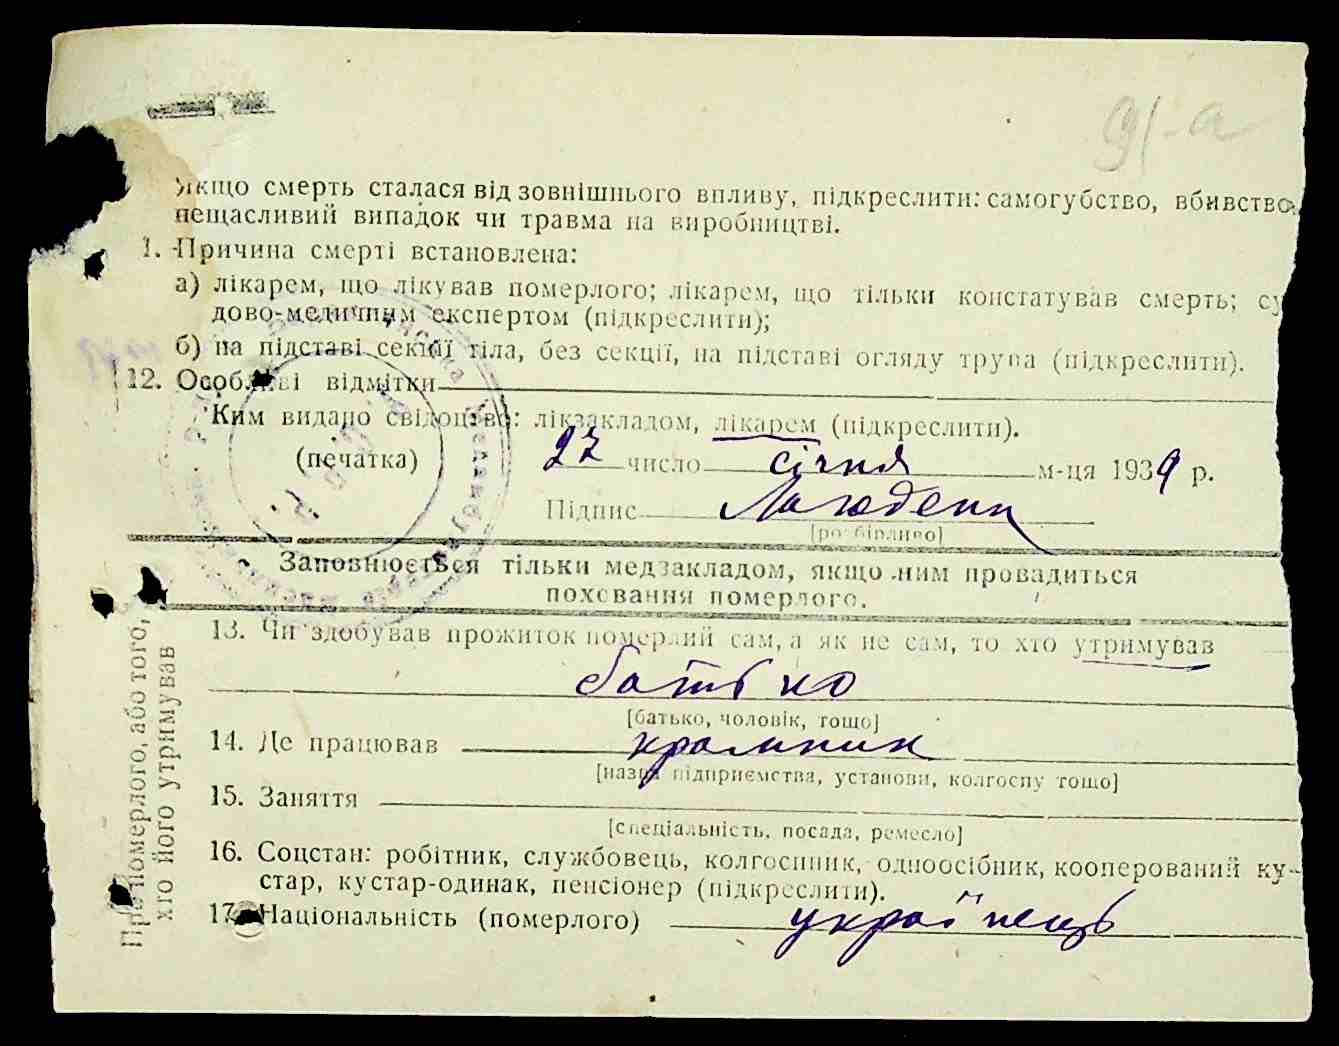 91-а
Якщо смерть сталася від зовнішнього впливу, підкреслити: самогубство, вбивство,
нещасливий випадок чи травма на виробництві.
1. Причина смерті встановлена:
а) лікарем, що лікував померлого; лікарем, що тільки констатував смерть; су
дово-медичним експертом (підкреслити);
б) на підставі секції тіла, без секції, на підставі огляду трупа (підкреслити).
12. Особливі відмітки
Ким видано свідоцтво: лікзакладом, лікарем (підкреслити).
(печатка) 27 число січня м-ця 1939 р.
Підпис
[розбірливо]
Заповнюється тільки медзакладом, якщо ним провадиться
поховання померлого.
Про померлого, або того,
хто його утримував
13. Чи здобував прожиток померлий сам, а як не сам, то хто утримував
батько
[батько, чоловік, тощо]
14. Де працював
[назва підприємства, установи, колгоспу тощо]
15. Заняття
[спеціальність, посада, ремесло]
16. Соцстан: робітник, службовець, колгоспник, одноосібник, кооперований ку-
стар, кустар-одинак, пенсіонер (підкреслити).
17. Національність (померлого) українець